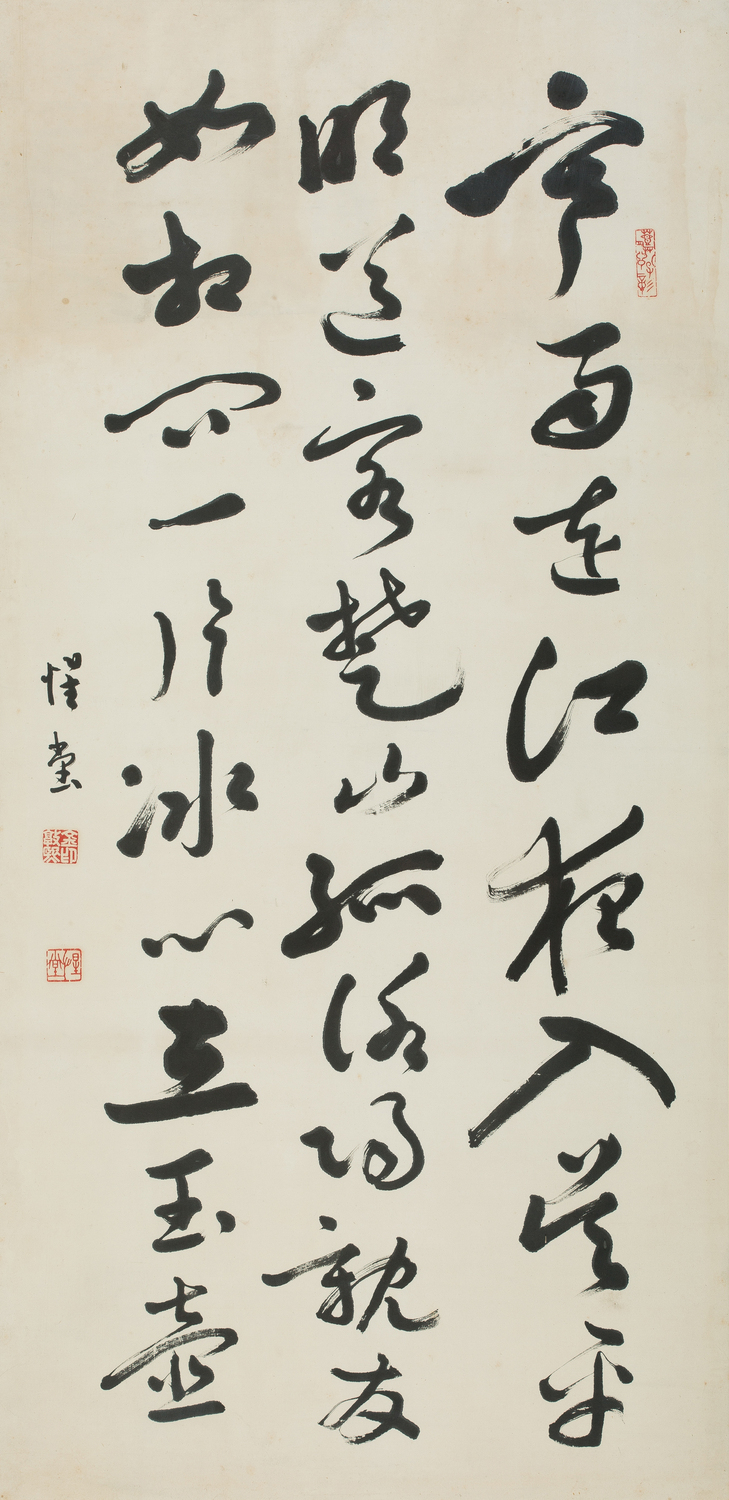 寒雨連江夜入吳平
明送客楚山孤洛陽親友
如相問一片冰心在玉壺
惺堂
金印敦熙
惺堂